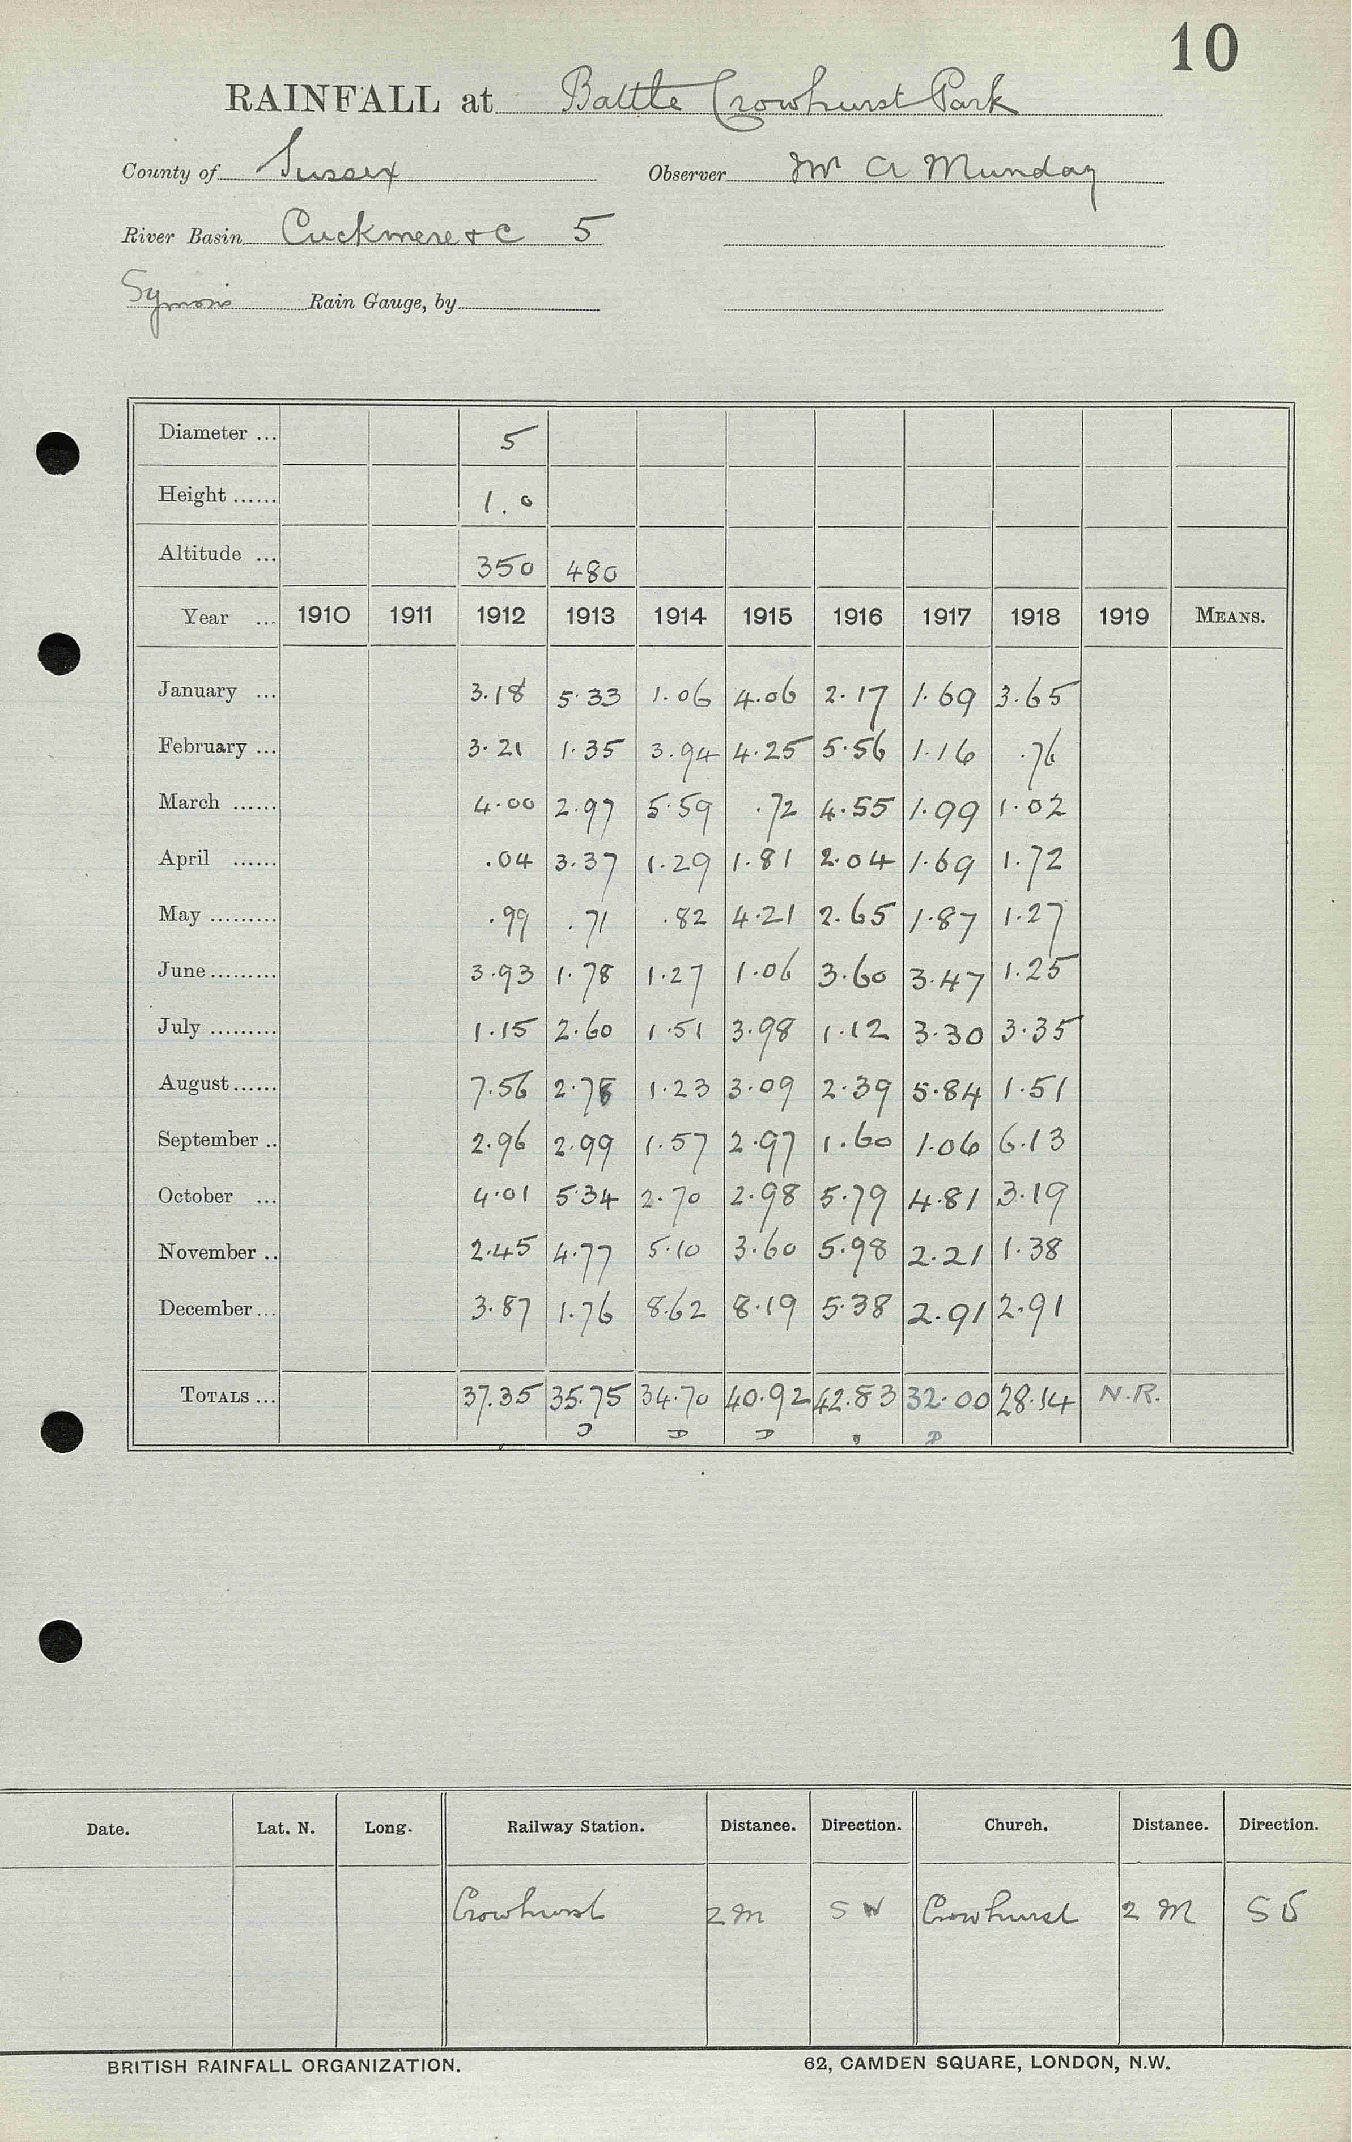 10
RAINFALL at Battle Crowhurst Park
County of Sussex Observer Mr A Munday
River Basin Cuckmere & C 5
Symons Rain Gauge, by
Diameter ... 5
Height ...... 1.0
Altitude ... 350 480
Year ... 1910 1911 1912 1913 1914 1915 1916 1917 1918 1919 MEANS.
January ... 3.18 5.33 1.06 4.06 2.17 1.69 3.65
February ... 3.21 1.35 3.94 4.25 5.56 1.16 .76
March ...... 4.00 2.97 5.59 .72 4.55 1.99 1.02
April ...... .04 3.37 1.29 1.81 2.04 1.69 1.72
May ......... .99 .71 .82 4.21 2.65 1.87 1.27
June ......... 3.93 1.78 1.27 1.06 3.60 3.47 1.25
July ......... 1.15 2.60 1.51 3.98 1.12 3.30 3.35
August ...... 7.56 2.78 1.23 3.09 2.39 5.84 1.51
September .. 2.96 2.99 1.57 2.97 1.60 1.06 6.13
October ... 4.01 5.34 2.70 2.98 5.79 4.81 3.19
November .. 2.45 4.77 5.10 3.60 5.98 2.21 1.38
December ... 3.87 1.76 8.62 8.19 5.38 2.91 2.91
TOTALS ... 37.35 35.75 34.70 40.92 42.83 32.00 28.14 N.R.
Date. Lat. N. Long. Railway Station. Distance. Direction. Church. Distance. Direction.
Crowhurst 2 M S W Crowhurst 2 M S E
BRITISH RAINFALL ORGANIZATION. 62, CAMDEN SQUARE, LONDON, N.W.